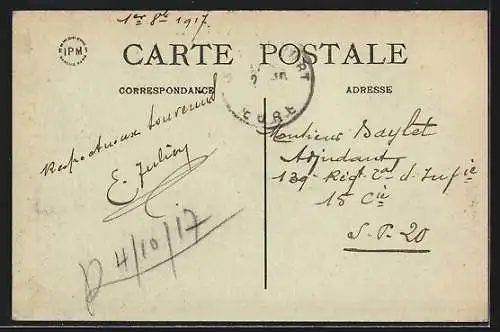 1er 8b 1917.
IPM
CARTE POSTALE
CORRESPONDANCE
ADRESSE
EURE
Respectueux souvenir
E. Julien
R 4/10/17
Monsieur Baylet
Adjudant
139e Régt ral d. Infie
15 Cie
S.P. 20